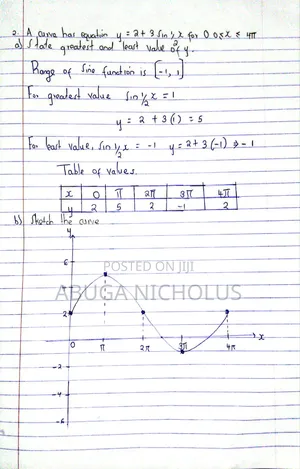 2. A curve has equation y = 2 + 3 sin ½ x for 0 ≤ x ≤ 4π
a) State greatest and least value of y.
Range of Sine function is [-1, 1]
For greatest value Sin ½ x = 1
y = 2 + 3(1) = 5
For least value, Sin ½ x = -1 y = 2+3(-1) ⇒ -1
Table of values.
x 0 π 2π 3π 4π
y 2 5 2 -1 2
b) Sketch the curve
y
6
POSTED ON JIJI
4
ABUGA NICHOLUS
2
x
0 π 2π 3π 4π
-2
-4
-6